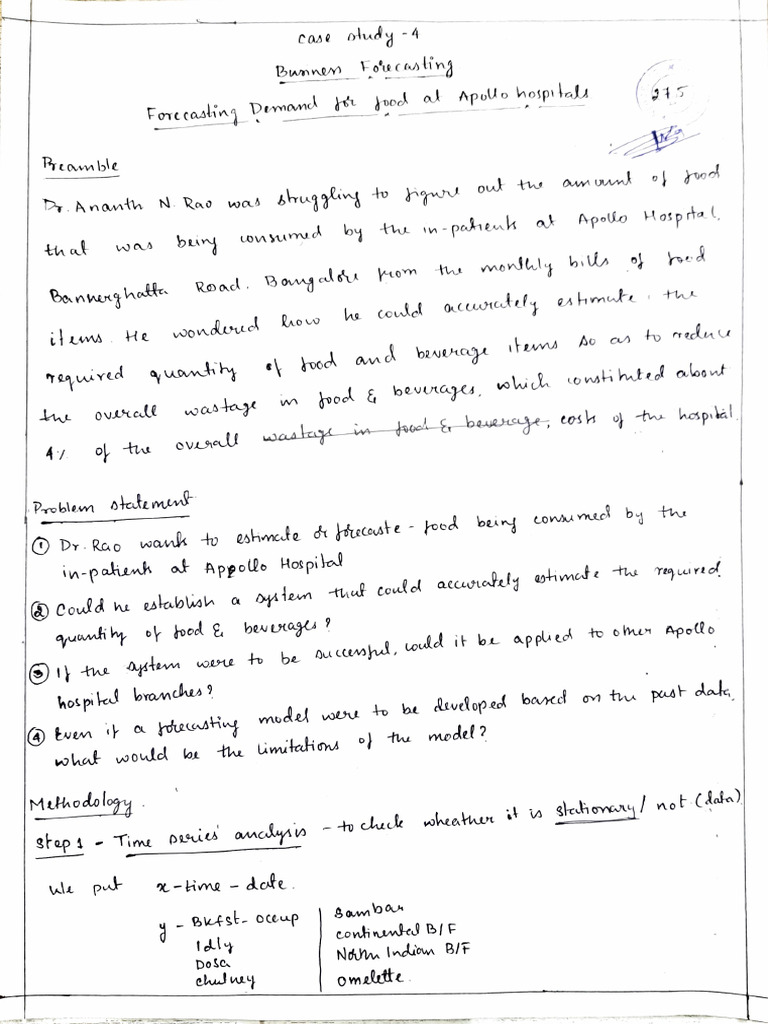 Case study - 4
Business Forecasting
Forecasting Demand for food at Apollo hospitals
275
Preamble
Dr. Ananth N. Rao was struggling to figure out the amount of food
that was being consumed by the in-patients at Apollo Hospital,
Bannerghatta Road. Bangalore from the monthly bills of food
items. He wondered how he could accurately estimate the
required quantity of food and beverage items so as to reduce
the overall wastage in food & beverages, which constituted about
4% of the overall wastage in food & beverage, costs of the hospital.
Problem statement
① Dr. Rao wants to estimate or forecaste - food being consumed by the
in-patients at Appollo Hospital
② Could he establish a system that could accurately estimate the required
quantity of food & beverages?
③ If the system were to be successful, could it be applied to other Apollo
hospital branches?
④ Even if a forecasting model were to be developed based on the past data,
what would be the limitations of the model?
Methodology.
Step 1 - Time series analysis - to check wheather it is stationary / not (data)
We put x - time - date.
y - Bkfst - occup | Sambar
Idly | continental B/F
Dosa | North Indian B/F
chutney | omelette.